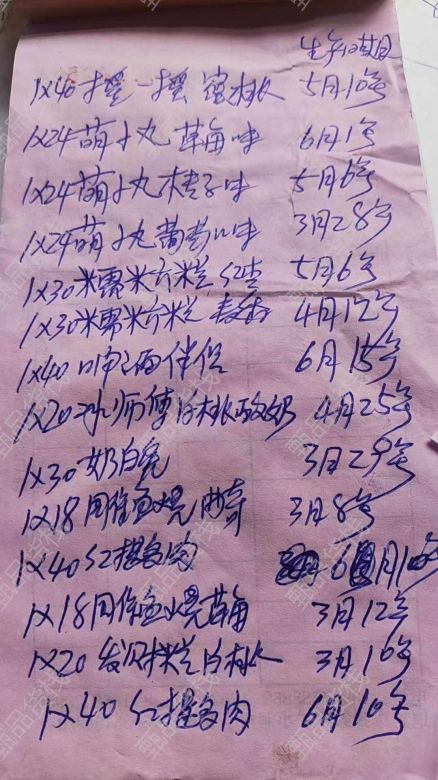 生产日期
1X40 摇一摇 蜜桃 5月10号
1X24 萌小丸 草莓味 6月1号
1X24 萌小丸 桔子味 5月6号
1X24 萌小丸 葡萄口味 3月28号
1X30 米露米 红枣 5月6号
1X30 米露米 4月12号
1X40 伴侣 6月15号
1X20 冰师傅白桃酸奶 4月25号
1X30 奶白兔 3月29号
1X18 鱼 曲奇 3月8号
1X40 红提多肉 6月10号
1X18 鱼 草莓 3月12号
1X20 白桃 3月10号
1X40 红提多肉 6月10号
甄品货栈